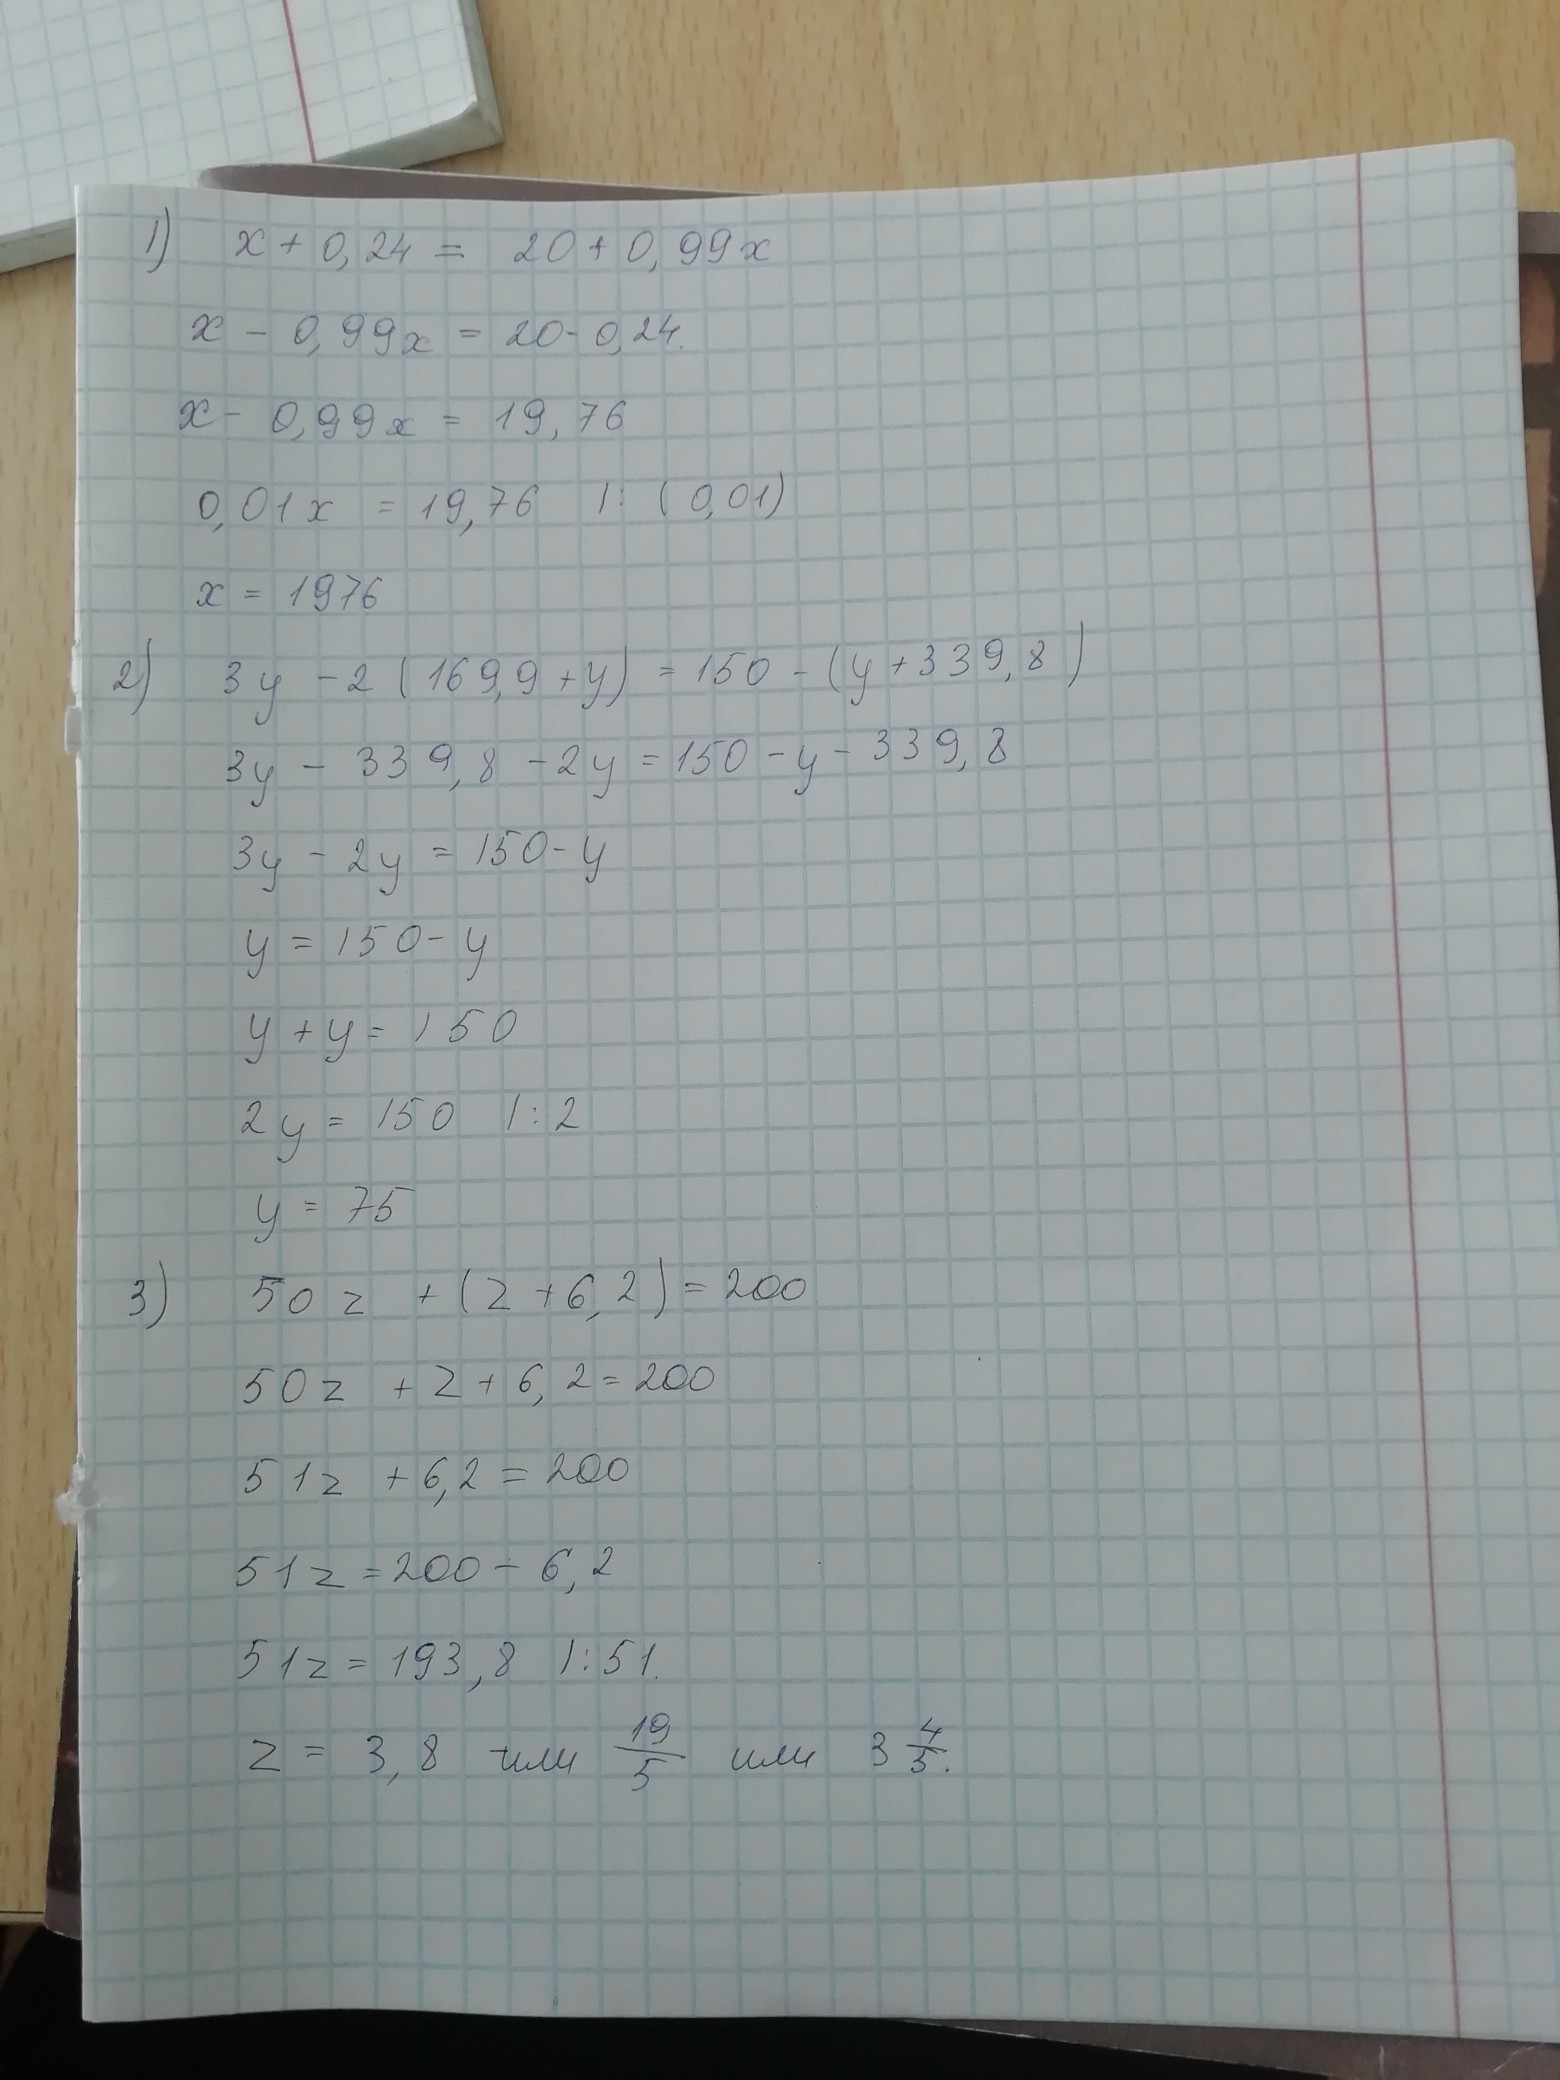 1) x + 0,24 = 20 + 0,99x
x - 0,99x = 20 - 0,24.
x - 0,99x = 19,76
0,01x = 19,76 |: (0,01)
x = 1976
2) 3y - 2(169,9 + y) = 150 - (y + 339,8)
3y - 339,8 - 2y = 150 - y - 339,8
3y - 2y = 150 - y
y = 150 - y
y + y = 150
2y = 150 |: 2
y = 75
3) 50z + (z + 6,2) = 200
50z + z + 6,2 = 200
51z + 6,2 = 200
51z = 200 - 6,2
51z = 193,8 |: 51.
z = 3,8 или 19/5 или 3 4/5.